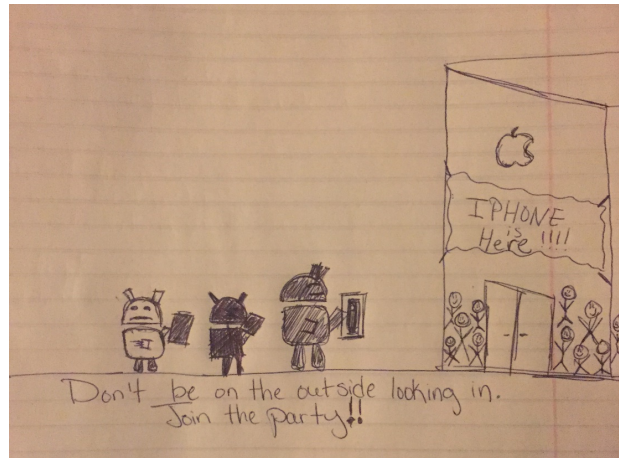 IPHONE
is
Here !!!!
Don't be on the outside looking in.
Join the party!!